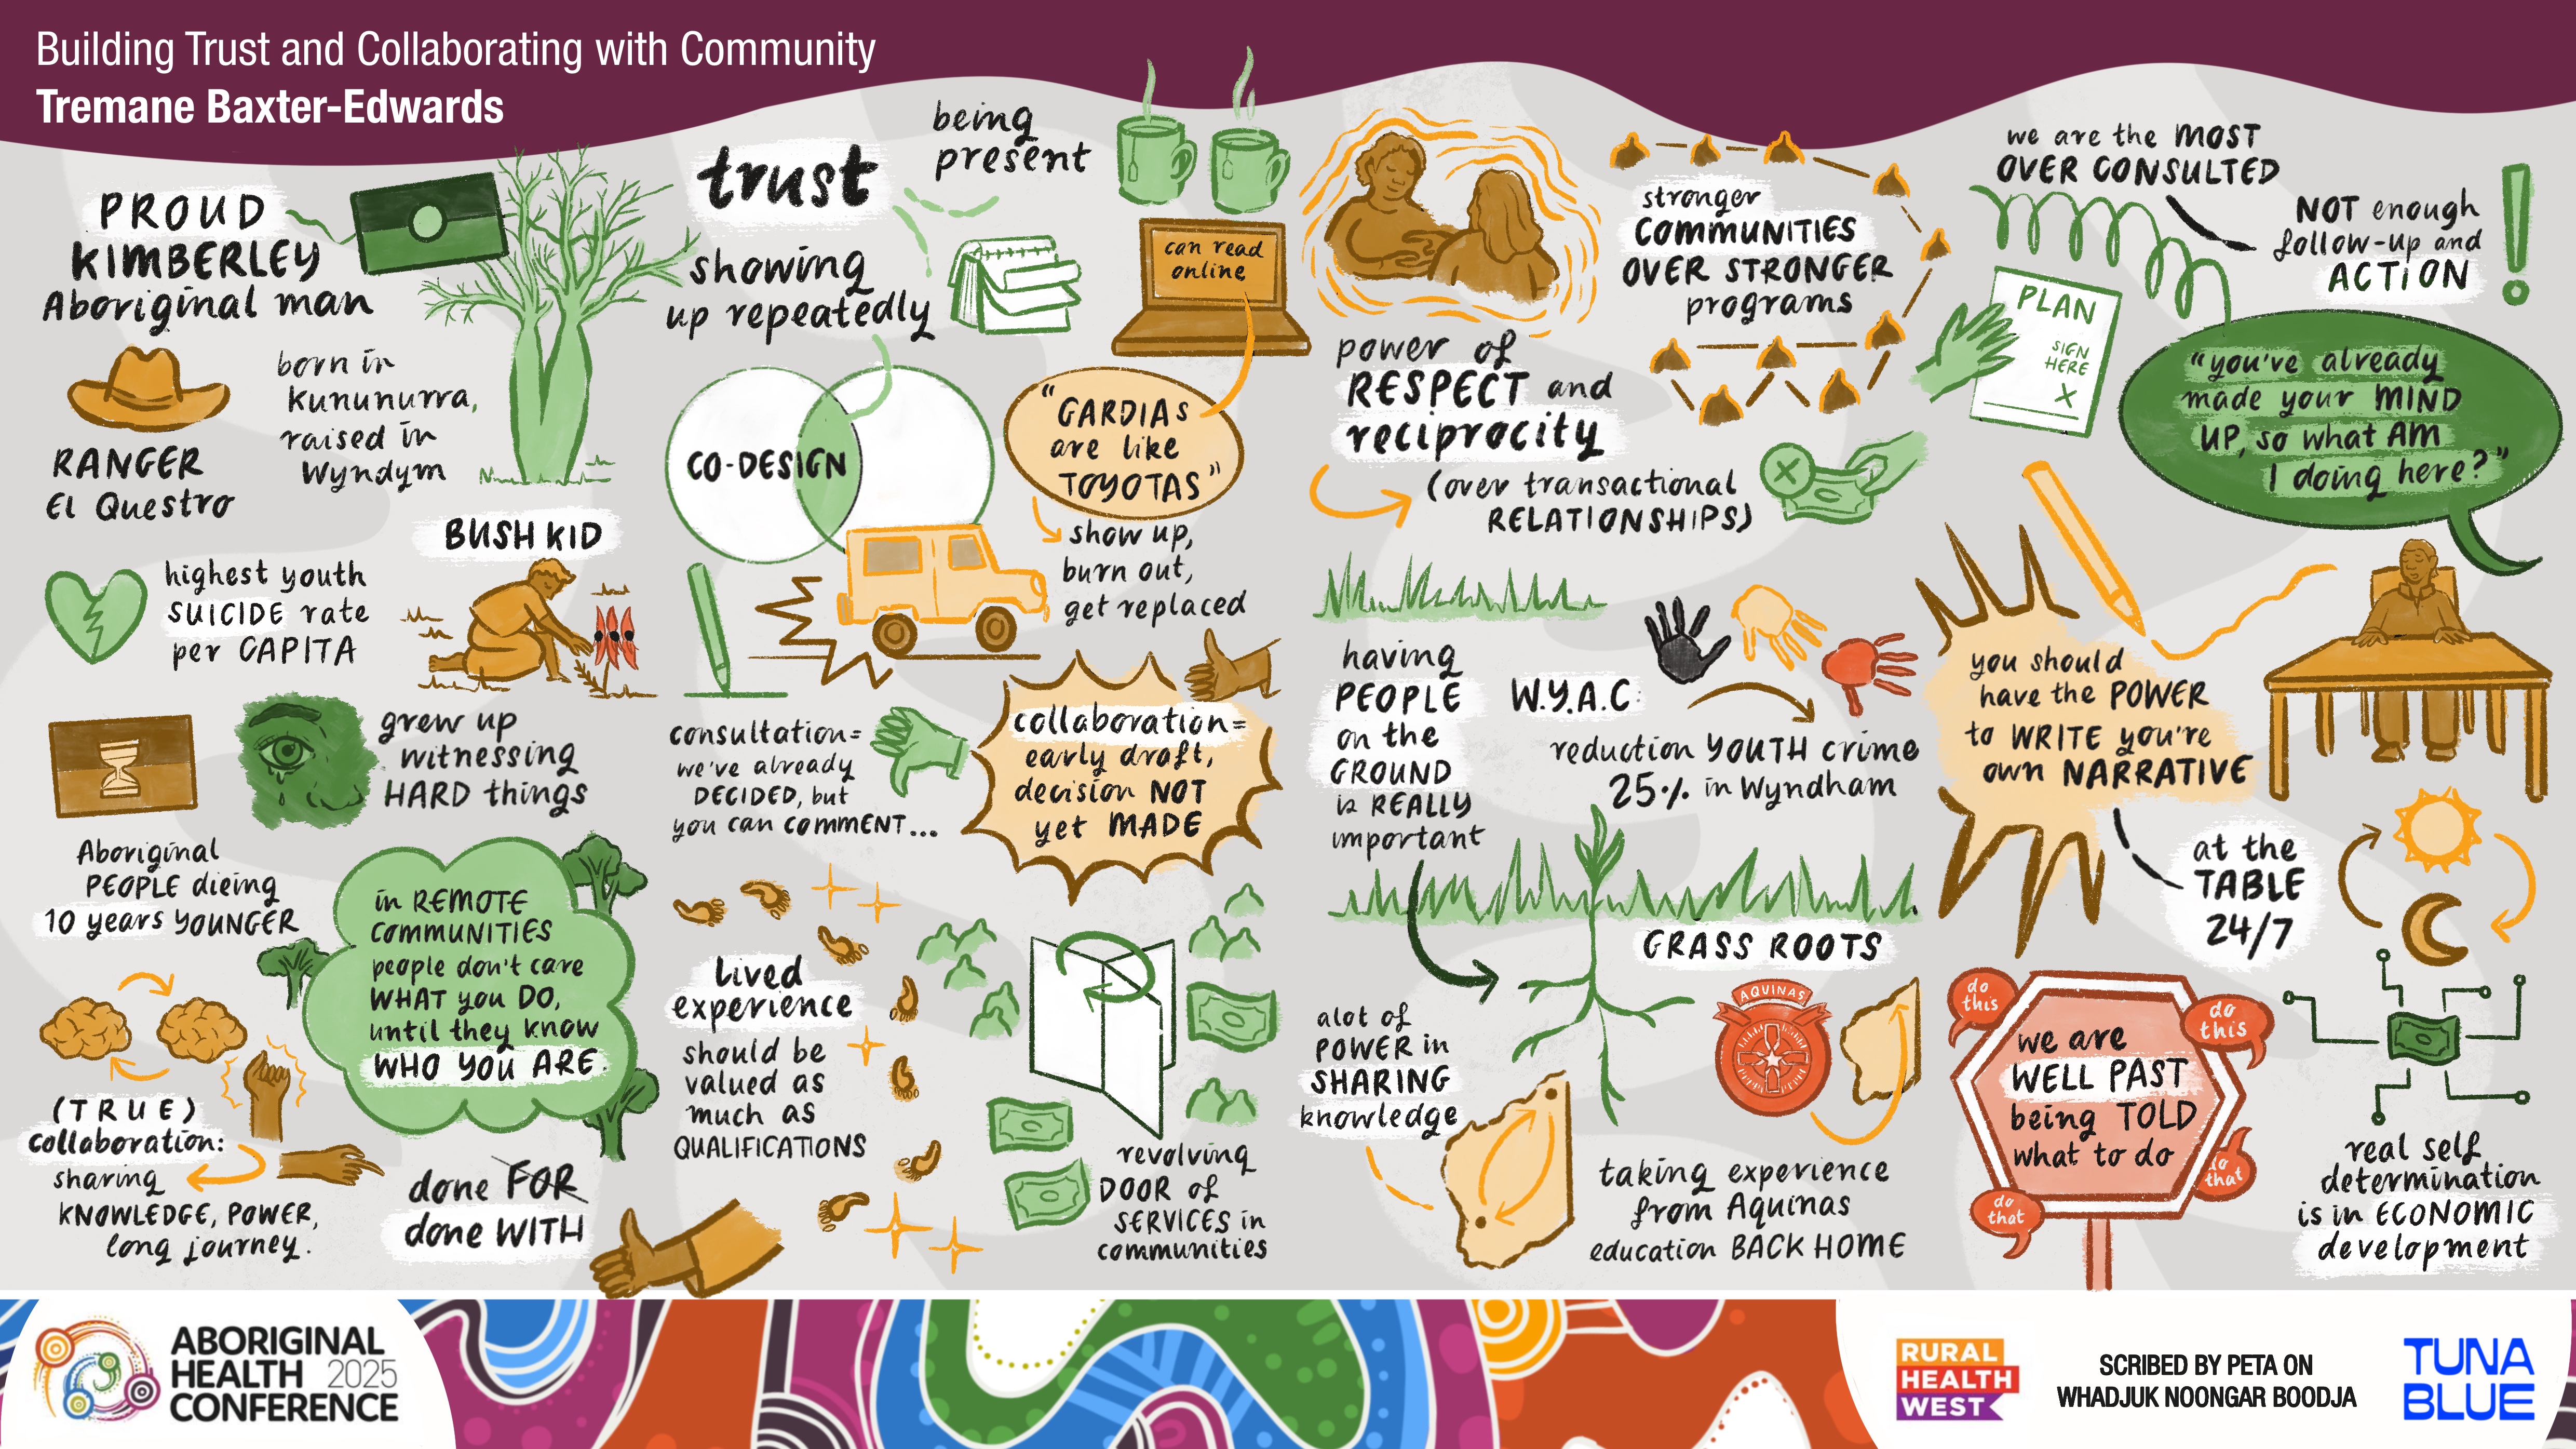 Building Trust and Collaborating with Community
Tremane Baxter-Edwards
PROUD
KIMBERLEY
Aboriginal man
RANGER
El Questro
born in
Kununurra,
raised in
Wyndym
BUSH KID
highest youth
SUICIDE rate
per CAPITA
grew up
witnessing
HARD things
Aboriginal
PEOPLE dieing
10 years YOUNGER
in REMOTE
COMMUNITIES
people don't care
WHAT you DO,
until they know
WHO YOU ARE.
(TRUE)
collaboration:
sharing
KNOWLEDGE, POWER,
long journey.
done FOR
done WITH
trust
being
present
showing
up repeatedly
can read
online
CO-DESIGN
"GARDIAS
are like
TOYOTAS"
show up,
burn out,
get replaced
consultation=
we've already
DECIDED, but
you can comment...
collaboration=
early draft,
decision NOT
yet MADE
lived
experience
should be
valued as
much as
QUALIFICATIONS
revolving
DOOR of
SERVICES in
communities
power of
RESPECT and
reciprocity
(over transactional
RELATIONSHIPS)
stronger
COMMUNITIES
OVER STRONGER
programs
having
PEOPLE
on the
GROUND
is REALLY
important
W.Y.A.C:
reduction YOUTH crime
25% in Wyndham
GRASS ROOTS
alot of
POWER in
SHARING
knowledge
AQUINAS
taking experience
from Aquinas
education BACK HOME
we are the MOST
OVER CONSULTED
NOT enough
follow-up and
ACTION
PLAN
SIGN
HERE
X
"you've already
made your MIND
UP, so what AM
I doing here?"
you should
have the POWER
to WRITE you're
own NARRATIVE
at the
TABLE
24/7
do
this
do
this
we are
WELL PAST
being TOLD
what to do
do
that
do
that
real self
determination
is in ECONOMIC
development
ABORIGINAL
HEALTH 2025
CONFERENCE
RURAL
HEALTH
WEST
SCRIBED BY PETA ON
WHADJUK NOONGAR BOODJA
TUNA
BLUE